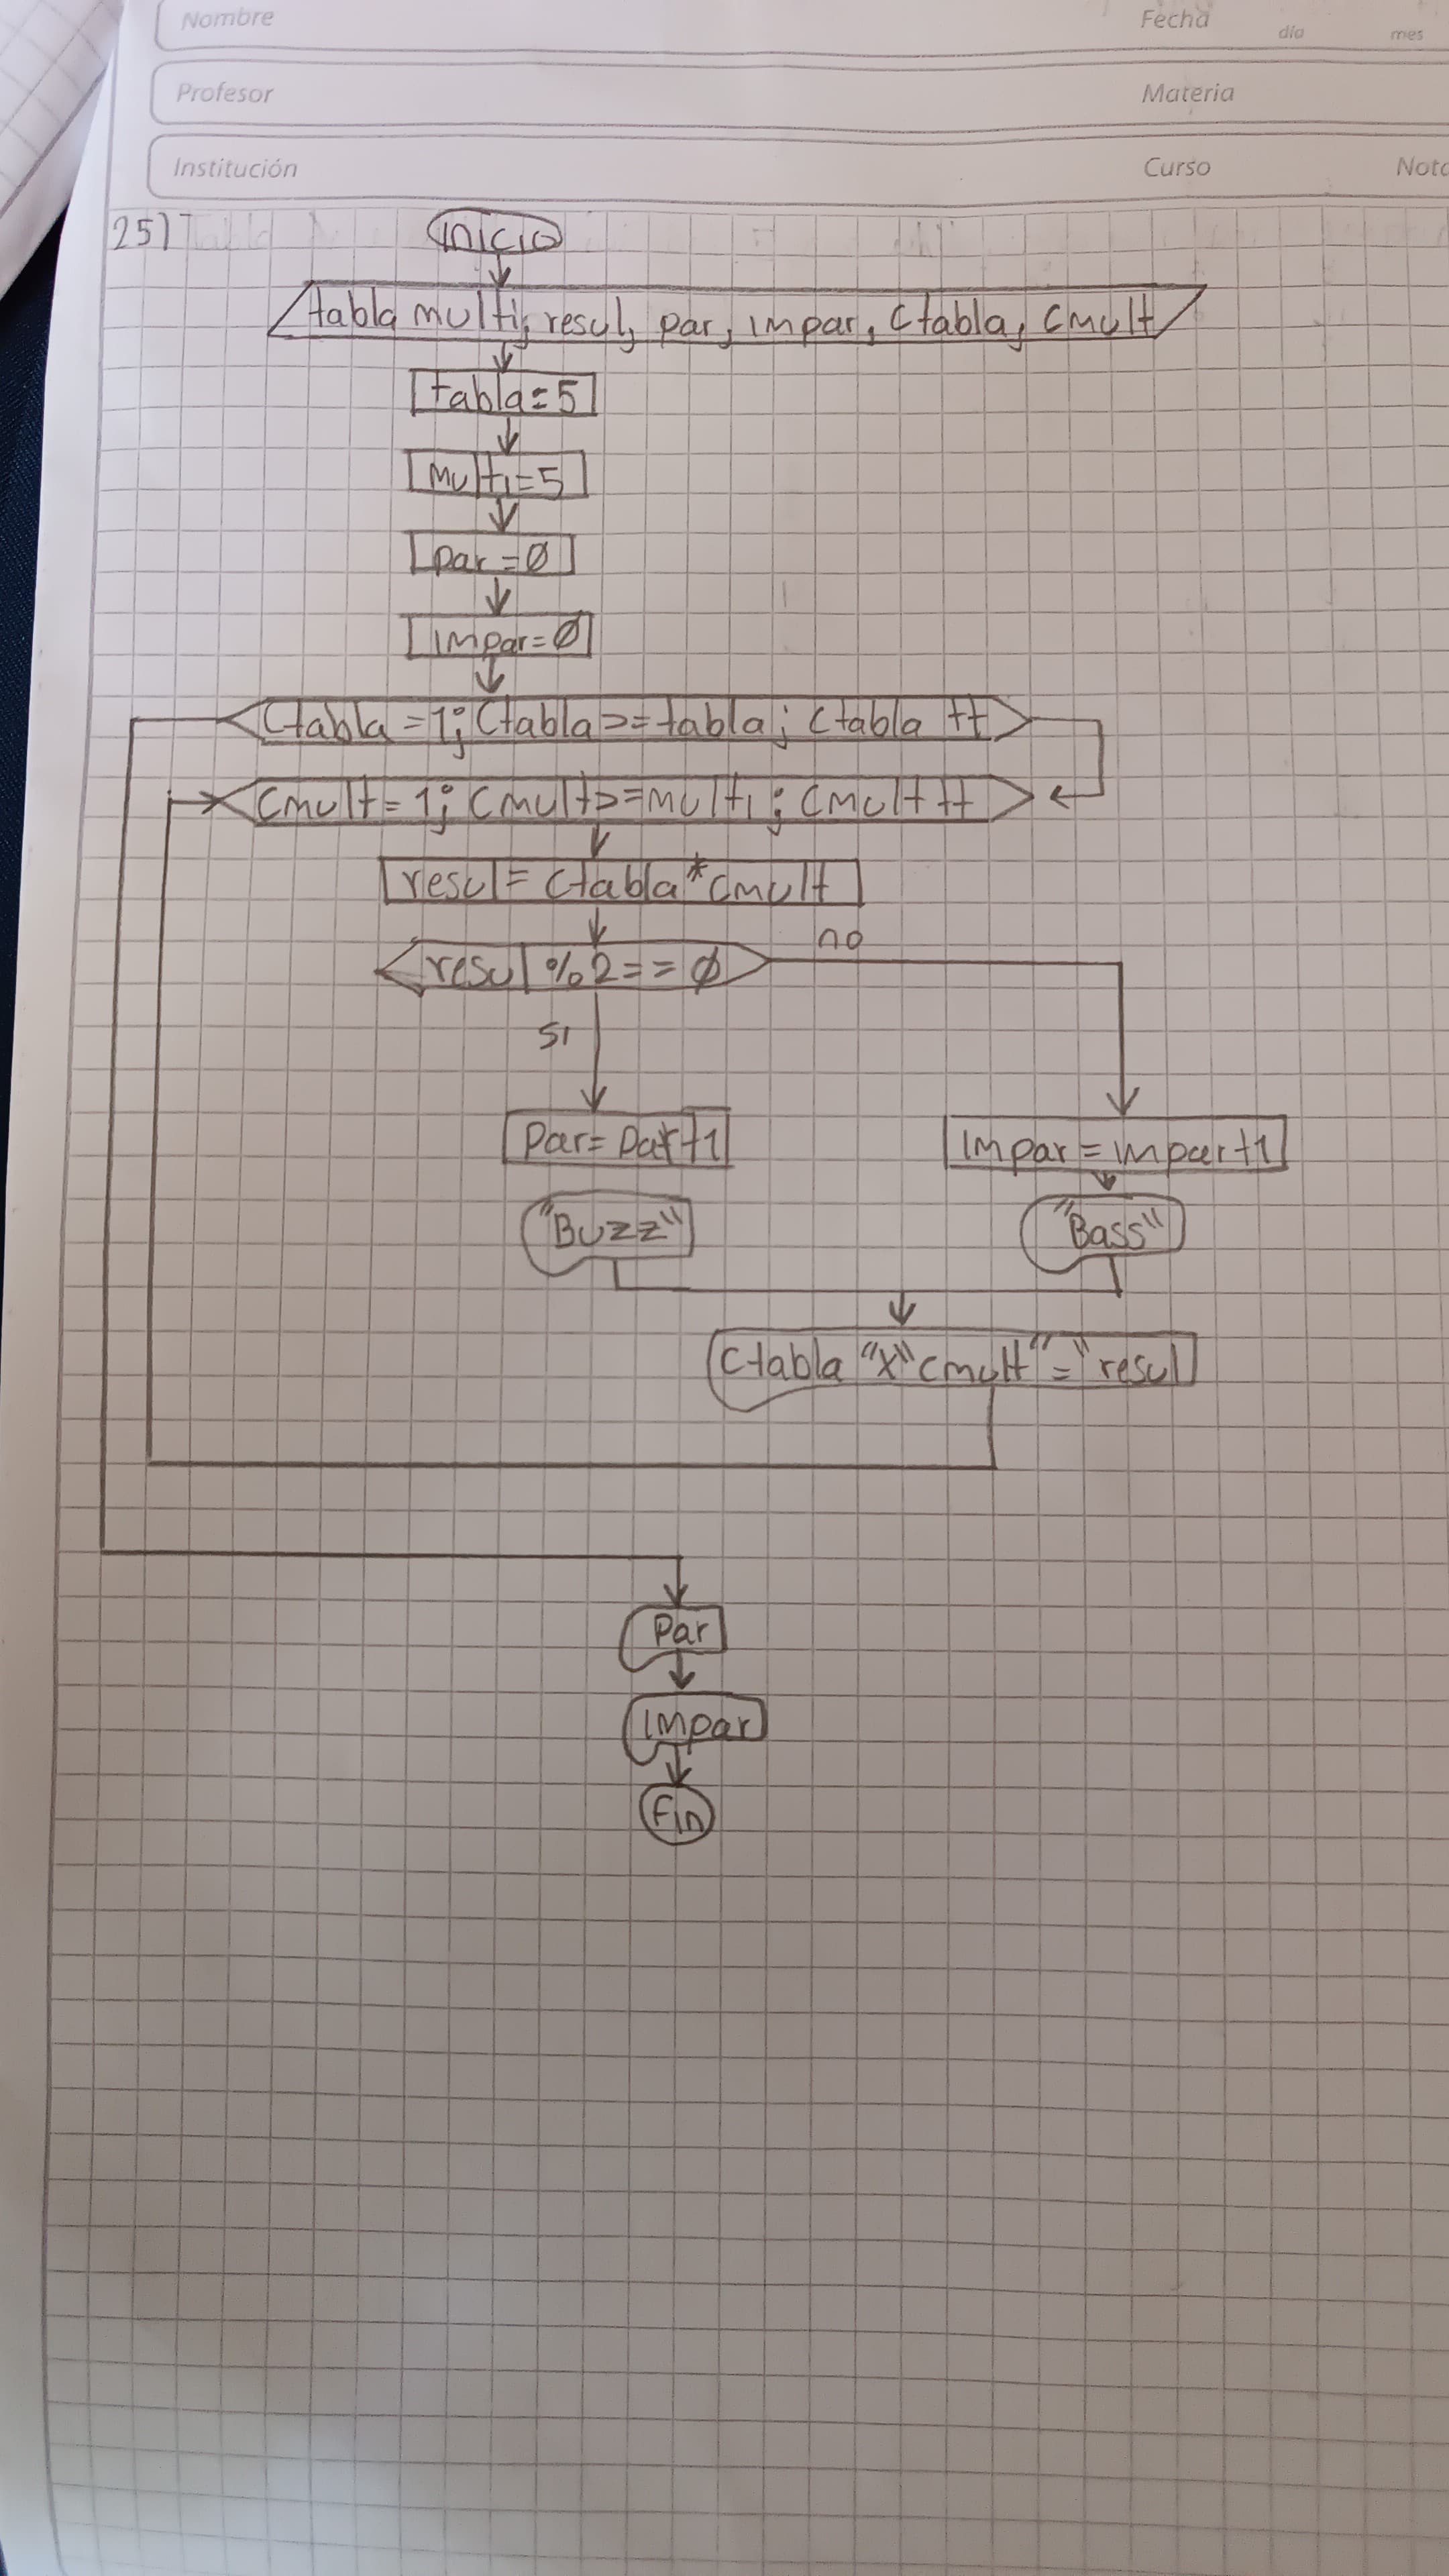 Nombre Fecha día mes
Profesor Materia
Institución Curso
25)
inicio
tabla multi, resul, par, impar, ctabla, cmult
tabla=5
multi=5
par=Ø
impar=Ø
Ctabla=1; Ctabla>=tabla; Ctabla ++
Cmult=1; Cmult>=multi; Cmult ++
resul=Ctabla*cmult
resul%2==Ø no
si
Par=Par+1 Impar=impar+1
"Buzz" "Bass"
Ctabla "x" cmult "=" resul
Par
Impar
Fin